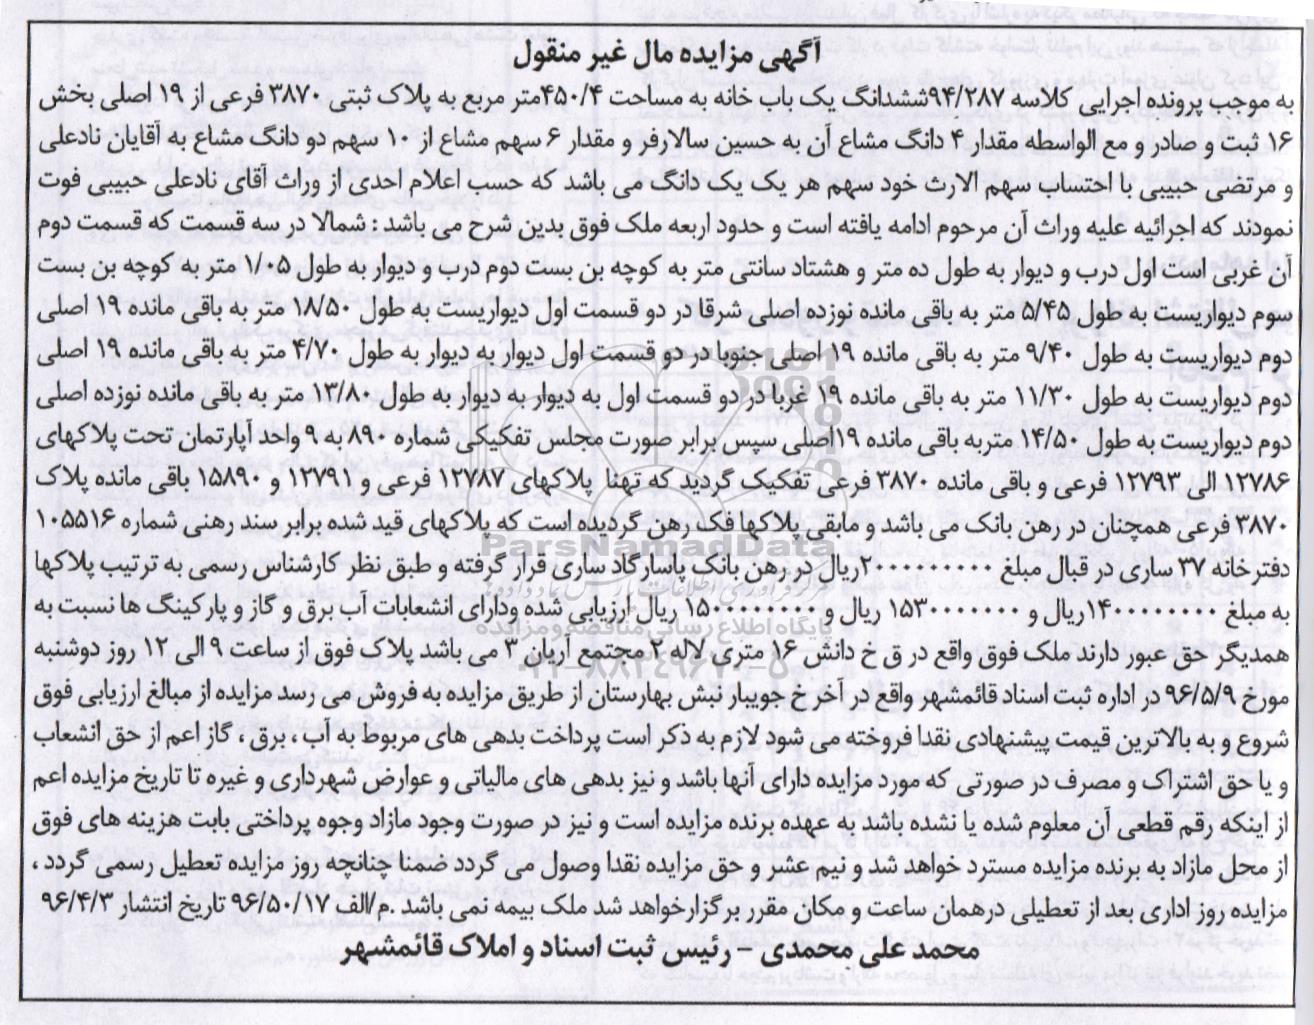 آگهی مزایده مال غیر منقول
به موجب پرونده اجرایی کلاسه ۹۴/۲۸۷ششدانگ یک باب خانه به مساحت ۴۵۰/۴متر مربع به پلاک ثبتی ۳۸۷۰ فرعی از ۱۹ اصلی بخش
۱۶ ثبت و صادر و مع الواسطه مقدار ۴ دانگ مشاع آن به حسین سالارفر و مقدار ۶ سهم مشاع از ۱۰ سهم دو دانگ مشاع به آقایان نادعلی
و مرتضی حبیبی با احتساب سهم الارث خود سهم هر یک یک دانگ می باشد که حسب اعلام احدی از وراث آقای نادعلی حبیبی فوت
نمودند که اجرائیه علیه وراث آن مرحوم ادامه یافته است و حدود اربعه ملک فوق بدین شرح می باشد : شمالا در سه قسمت که قسمت دوم
آن غربی است اول درب و دیوار به طول ده متر و هشتاد سانتی متر به کوچه بن بست دوم درب و دیوار به طول ۱/۰۵ متر به کوچه بن بست
سوم دیواریست به طول ۵/۴۵ متر به باقی مانده نوزده اصلی شرقا در دو قسمت اول دیواریست به طول ۱۸/۵۰ متر به باقی مانده ۱۹ اصلی
دوم دیواریست به طول ۹/۴۰ متر به باقی مانده ۱۹ اصلی جنوبا در دو قسمت اول دیوار به دیوار به طول ۴/۷۰ متر به باقی مانده ۱۹ اصلی
دوم دیواریست به طول ۱۱/۳۰ متر به باقی مانده ۱۹ غربا در دو قسمت اول به دیوار به دیوار به طول ۱۳/۸۰ متر به باقی مانده نوزده اصلی
دوم دیواریست به طول ۱۴/۵۰ متربه باقی مانده ۱۹اصلی سپس برابر صورت مجلس تفکیکی شماره ۸۹۰ به ۹ واحد آپارتمان تحت پلاکهای
۱۲۷۸۶ الی ۱۲۷۹۳ فرعی و باقی مانده ۳۸۷۰ فرعی تفکیک گردید که تهنا پلاکهای ۱۲۷۸۷ فرعی و ۱۲۷۹۱ و ۱۵۸۹۰ باقی مانده پلاک
۳۸۷۰ فرعی همچنان در رهن بانک می باشد و مابقی پلاکها فک رهن گردیده است که پلاکهای قید شده برابر سند رهنی شماره ۱۰۵۵۱۶
دفترخانه ۳۷ ساری در قبال مبلغ ۲۰۰۰۰۰۰۰۰۰۰ریال در رهن بانک پاسارگاد ساری قرار گرفته و طبق نظر کارشناس رسمی به ترتیب پلاکها
به مبلغ ۱۴۰۰۰۰۰۰۰۰ریال و ۱۵۳۰۰۰۰۰۰۰ ریال و ۱۵۰۰۰۰۰۰۰۰ ریال ارزیابی شده ودارای انشعابات آب برق و گاز و پارکینگ ها نسبت به
همدیگر حق عبور دارند ملک فوق واقع در ق خ دانش ۱۶ متری لاله ۲ مجتمع آریان ۳ می باشد پلاک فوق از ساعت ۹ الی ۱۲ روز دوشنبه
مورخ ۹۶/۵/۹ در اداره ثبت اسناد قائمشهر واقع در آخر خ جویبار نبش بهارستان از طریق مزایده به فروش می رسد مزایده از مبالغ ارزیابی فوق
شروع و به بالاترین قیمت پیشنهادی نقدا فروخته می شود لازم به ذکر است پرداخت بدهی های مربوط به آب ، برق ، گاز اعم از حق انشعاب
و یا حق اشتراک و مصرف در صورتی که مورد مزایده دارای آنها باشد و نیز بدهی های مالیاتی و عوارض شهرداری و غیره تا تاریخ مزایده اعم
از اینکه رقم قطعی آن معلوم شده یا نشده باشد به عهده برنده مزایده است و نیز در صورت وجود مازاد وجوه پرداختی بابت هزینه های فوق
از محل مازاد به برنده مزایده مسترد خواهد شد و نیم عشر و حق مزایده نقدا وصول می گردد ضمنا چنانچه روز مزایده تعطیل رسمی گردد ،
مزایده روز اداری بعد از تعطیلی درهمان ساعت و مکان مقرر برگزارخواهد شد ملک بیمه نمی باشد .م/الف ۹۶/۵۰/۱۷ تاریخ انتشار ۹۶/۴/۳
محمد علی محمدی - رئیس ثبت اسناد و املاک قائمشهر
ParsNamadData
پایگاه اطلاع رسانی مناقصه و مزایده
۰۲۱-۸۸۳۴۹۶۷۰-۵